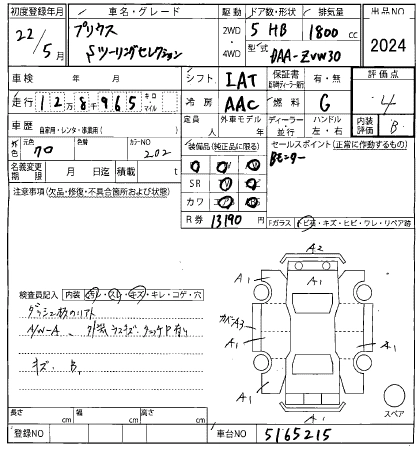 初度登録年月 車名・グレード 駆動 ドア数・形状 排気量 出品NO
22/5月 プリウス Sツーリングセレクション 2WD・4WD 5 HB 1800cc 2024
型式 DAA-ZVW30
車検 年 月 シフト IAT 保証書 有・無 評価点
走行 128965 キロ・マイル 冷房 AAC 燃料 G 4
車歴 自家用・レンタ・事業用( ) 定員 人 外車モデル 年 ディーラー 並行 ハンドル 左・右 内装評価 B
外色 元色 70 色替 カラーNO 202 装備品(純正品に限る) セールスポイント(正常に動作するもの)
Bモニター
名義変更期限 月 日迄 積載 t SR
注意事項(欠品・修復・不具合箇所および状態) カワ
R券 13190円 Fガラス トビ・キズ・ヒビ・ワレ・リペア跡
A2
A1
A1 A1
検査員記入 内装 汚れ・スレ・キズ・キレ・コゲ・穴
A1 A1
キズ、B,
A1 A1
A1
スペア
長さ cm 幅 cm 高さ cm
登録NO 車台NO 5165215